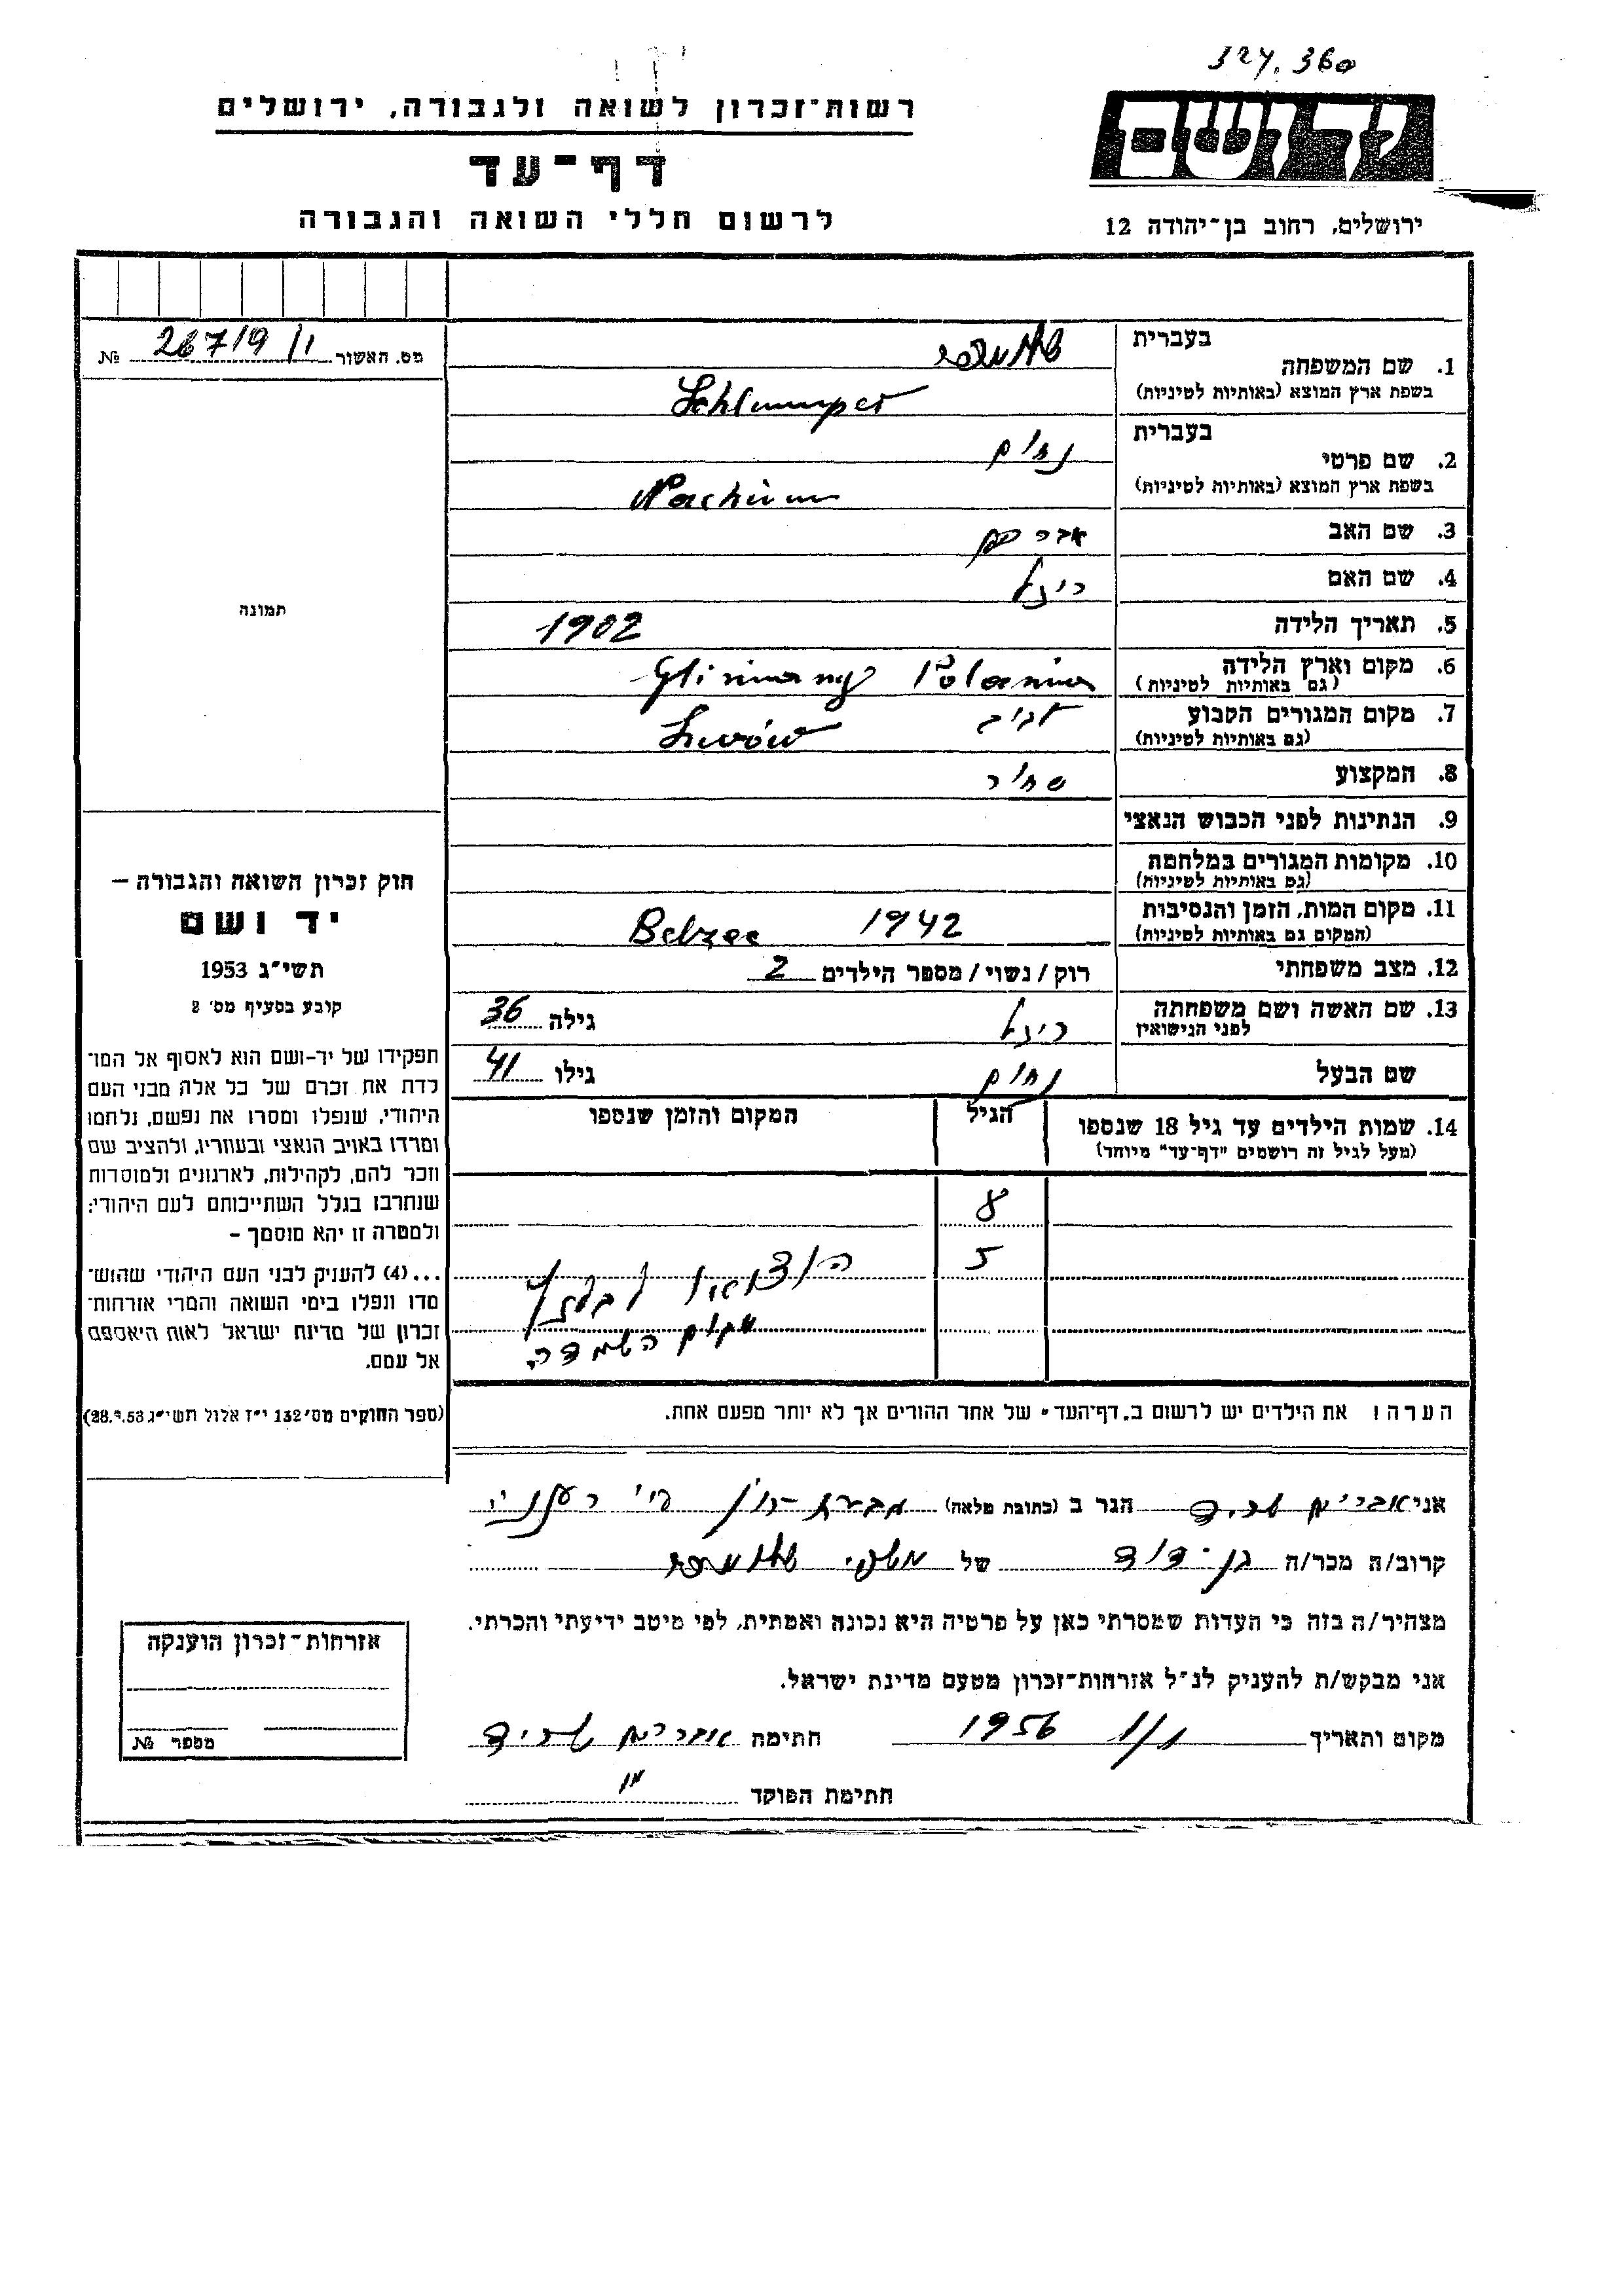 327.360
ידושם
רשות־זכרון לשואה ולגבורה, ירושלים
דף־עד
לרשום חללי השואה והגבורה
ירושלים, רחוב בן־יהודה 12
מס. האשור 26719/1 №
תמונה
בעברית
1. שם המשפחה
בשפת ארץ המוצא (באותיות לטיניות) Schlumper
בעברית נחום
2. שם פרטי
בשפת ארץ המוצא (באותיות לטיניות) Nachum
3. שם האב אברהם
4. שם האם ריזל
5. תאריך הלידה 1902
6. מקום וארץ הלידה Polania
(גם באותיות לטיניות)
7. מקום המגורים הקבוע לבוב Lwów
(גם באותיות לטיניות)
8. המקצוע סוחר
9. הנתינות לפני הכבוש הנאצי
10. מקומות המגורים במלחמה
(גם באותיות לטיניות)
11. מקום המות, הזמן והנסיבות 1942 Belzec
(המקום גם באותיות לטיניות)
12. מצב משפחתי רוק/נשוי/מספר הילדים 2
13. שם האשה ושם משפחתה ריזל גילה 36
לפני הנישואין
שם הבעל נחום גילו 41
14. שמות הילדים עד גיל 18 שנספו הגיל המקום והזמן שנספו
(מעל לגיל זה רושמים "דף־עד" מיוחד)
8
5
הוצאו לבלזץ
מקום השמדה
הערה! את הילדים יש לרשום ב„דף־העד" של אחד ההורים אך לא יותר מפעם אחת.
חוק זכרון השואה והגבורה –
יד ושם
תשי״ג 1953
קובע בסעיף מס׳ 2
תפקידו של יד-ושם הוא לאסוף אל המו־
לדת את זכרם של כל אלה מבני העם
היהודי, שנפלו ומסרו את נפשם, נלחמו
ומרדו באויב הנאצי ובעוזריו, ולהציב שם
וזכר להם, לקהילות, לארגונים ולמוסדות
שנחרבו בגלל השתייכותם לעם היהודי;
ולמטרה זו יהא מוסמך –
...(4) להעניק לבני העם היהודי שהוש־
מדו ונפלו בימי השואה והמרי אזרחות־
זכרון של מדינת ישראל לאות היאספם
אל עמם.
(ספר החוקים מס׳ 132 י״ז אלול תשי״ג 28.9.53)
אני אפרים שריד הגר ב (כתובת מלאה) רעננה
קרוב/ה מכר/ה בן־דוד של
מצהיר/ה בזה כי העדות שמסרתי כאן על פרטיה היא נכונה ואמתית, לפי מיטב ידיעתי והכרתי.
אני מבקש/ת להעניק לנ״ל אזרחות־זכרון מטעם מדינת ישראל.
מקום ותאריך 1/1 1956 חתימה אפרים שריד
חתימת הפוקד
אזרחות־זכרון הוענקה
מספר №